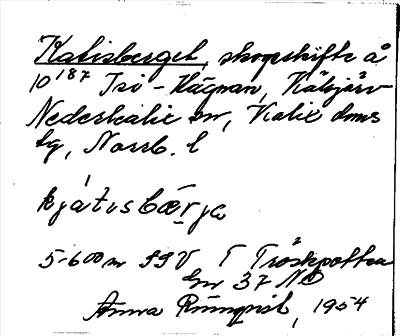 Katisberget, skogsskifte å
10¹⁸⁷ Isi-Hägnan, Kälsjärv
Nederkalix sn, Kalix dmss
tg, Norrb. l
kjátisbærja
5-600 m SSV T Tröskpotten
Gr 37 NO
Anna Rönnqvist, 1954